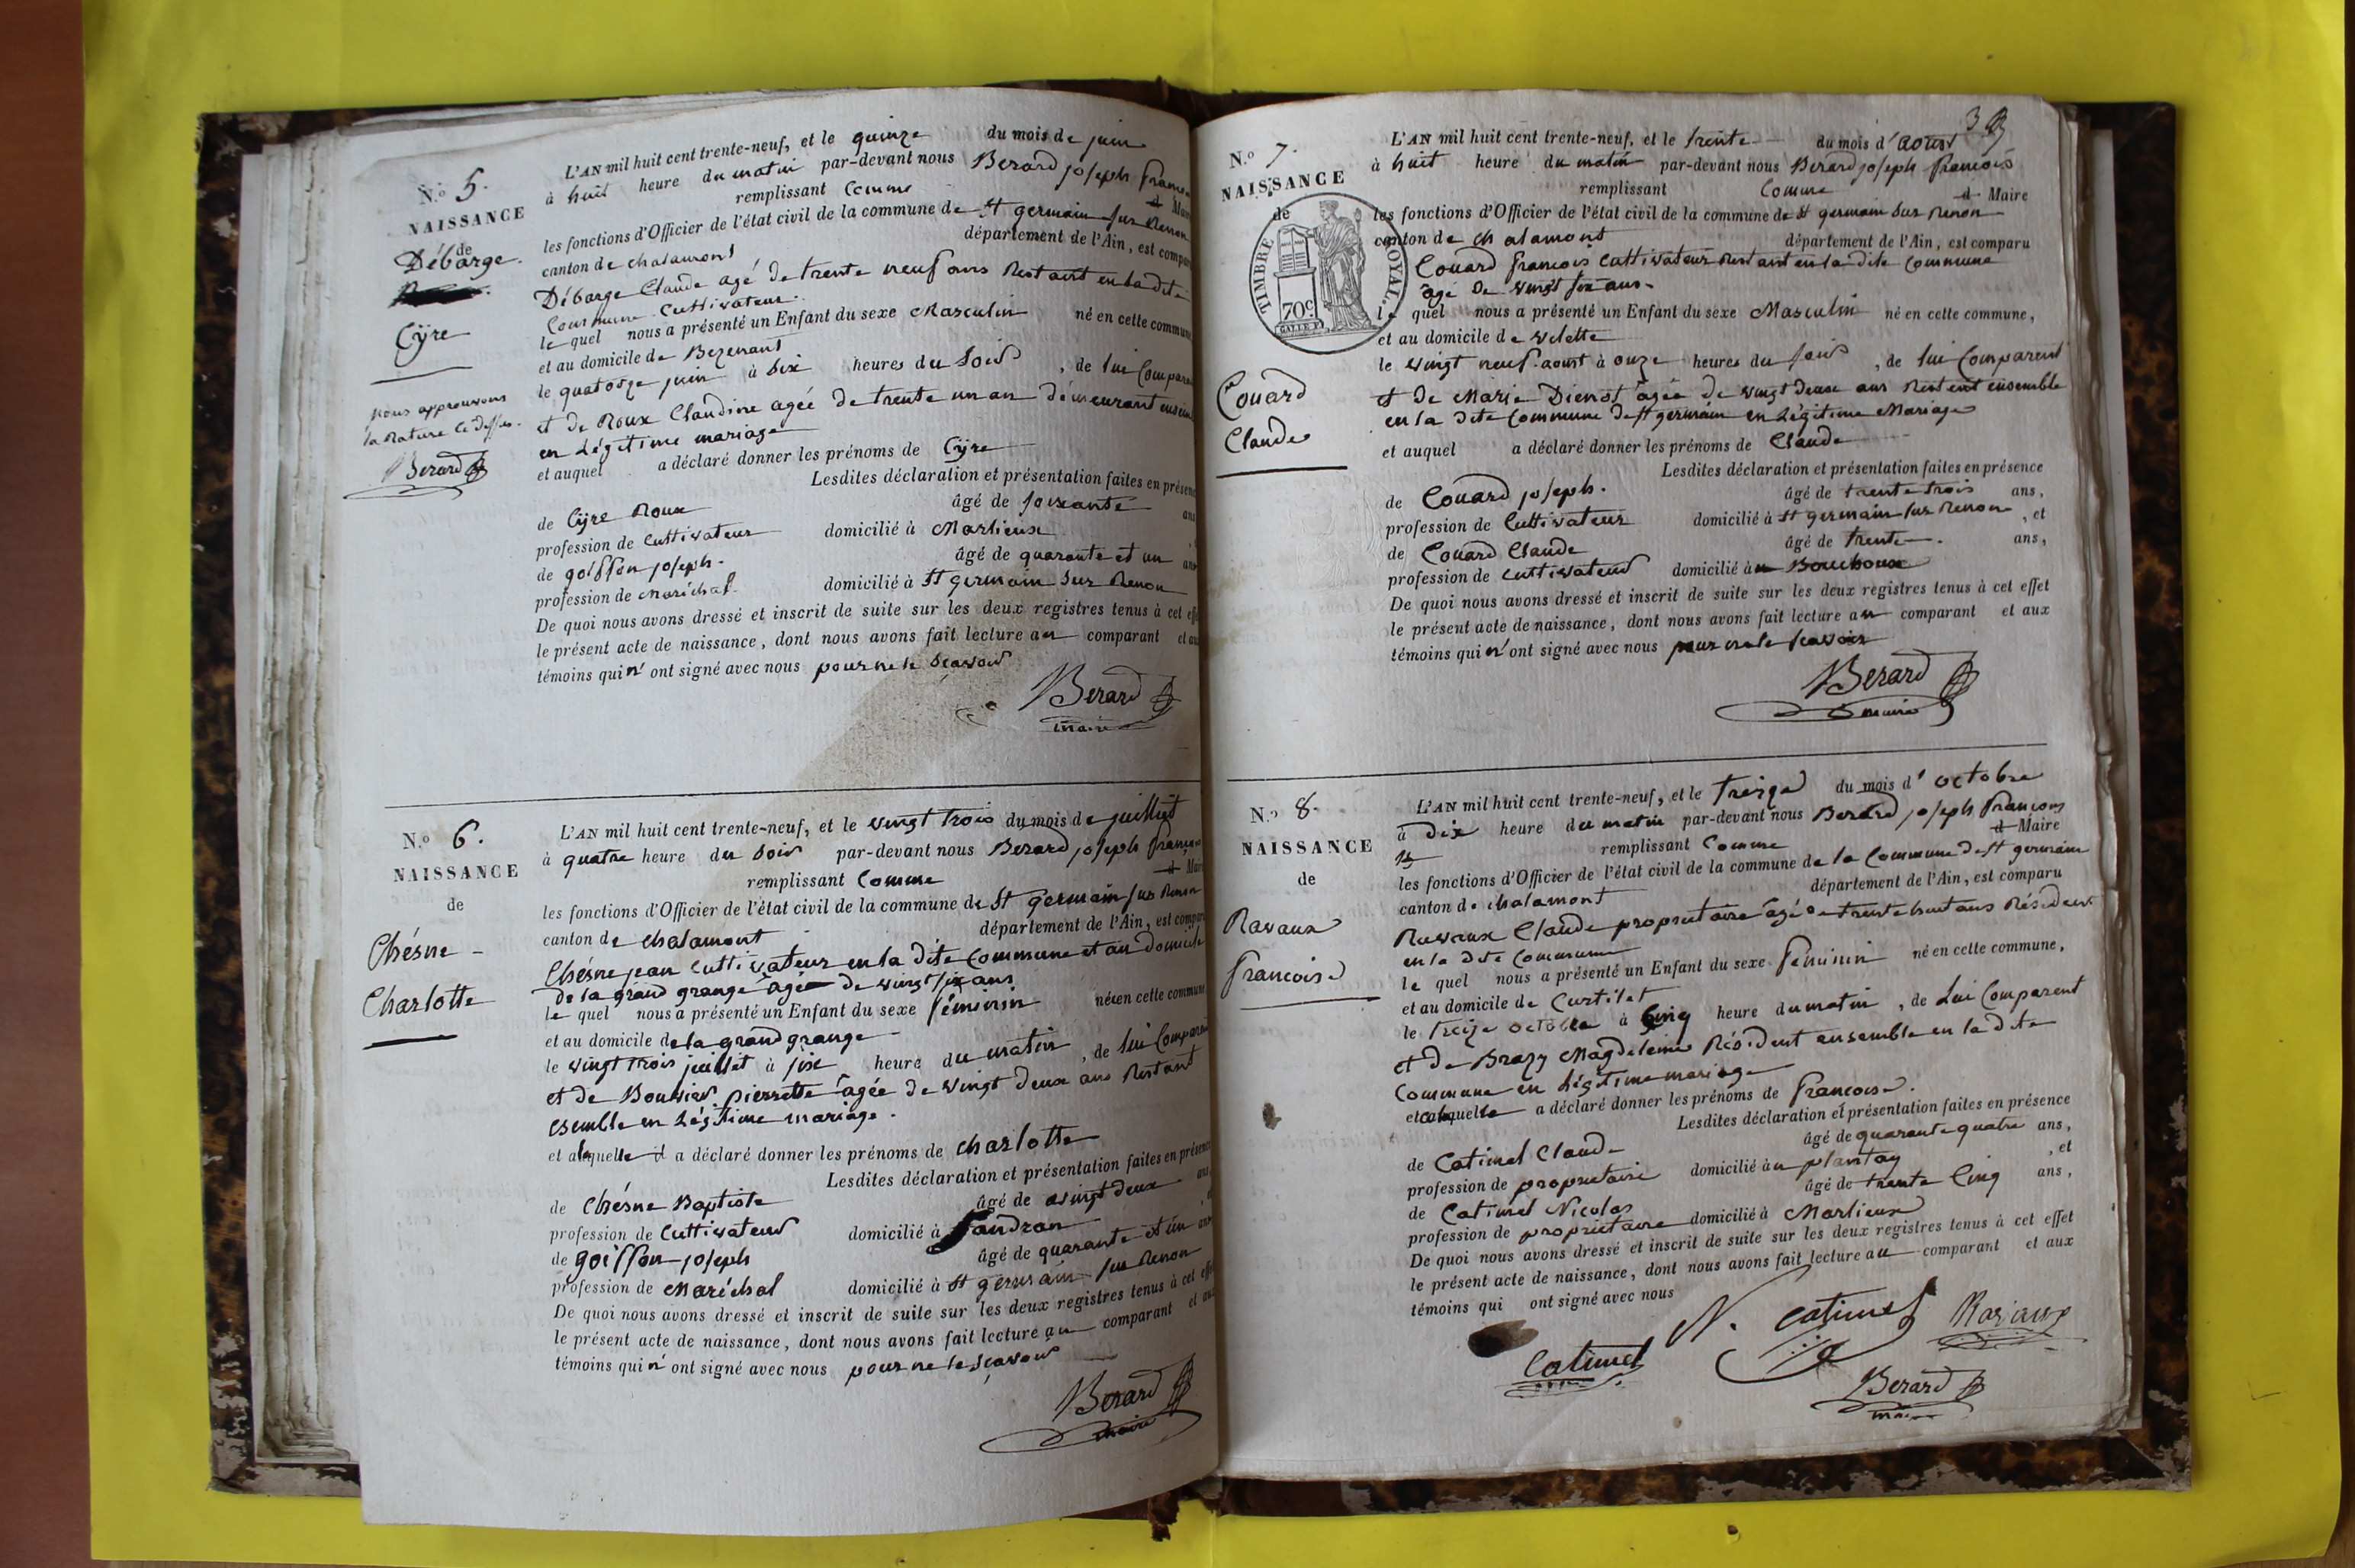 N.º 5.
NAISSANCE
de
Débarge.
Cÿre
nous approuvons
la Rature ci dessus.
Berard
L'AN mil huit cent trente-neuf, et le quinze du mois de juin
à huit heure du matin par-devant nous Berard joseph
remplissant Comme
les fonctions d'Officier de l'état civil de la commune de St germain sur Renon
canton de chalamont département de l'Ain, est compar
Débarge Claude agé de trente neuf ans Restant en la dite
Commune Cultivateur.
le quel nous a présenté un Enfant du sexe Masculin né en cette commune
et au domicile de Bezenant
le quatorze juin à Six heures du Soir, de lui Compara
et de Roux Claudine agée de trente un an démeurant
en Légitime mariage
et auquel a déclaré donner les prénoms de Cÿre
Lesdites déclaration et présentation faites en présenc
de Cÿre Roux âgé de soixante ans
profession de Cultivateur domicilié à Marlieux
de goiffon joseph. âgé de quarante et un ans
profession de Maréchal domicilié à St germain Sur Renon
De quoi nous avons dressé et inscrit de suite sur les deux registres tenus à cet eff
le présent acte de naissance, dont nous avons fait lecture au comparant et au
témoins qui n' ont signé avec nous pour ne le Scavoir
Berard
maire
N.º 6.
NAISSANCE
de
Chésne
Charlotte
L'AN mil huit cent trente-neuf, et le vingt trois du mois de juillet
à quatre heure du Soir par-devant nous Berard joseph françois
remplissant Comme d Mai
les fonctions d'Officier de l'état civil de la commune de St germain sur Renon
canton de chalamont département de l'Ain, est compar
Chésne jean Cultivateur en la dite Commune et au domicile
de la grand grange âgé de vingt six ans
le quel nous a présenté un Enfant du sexe féminin née en cette commune
et au domicile de la grand grange
le vingt trois juillet à six heure du matin, de lui Comparen
et de Bouvier pierrette âgée de vingt deux ans Restant
esemble en Légitime mariage.
et a laquelle il a déclaré donner les prénoms de charlotte
Lesdites déclaration et présentation faites en présenc
de Chésne Baptiste âgé de vingt deux ans
profession de Cultivateur domicilié à Sandran
de goiffon joseph âgé de quarante et un ans
profession de Maréchal domicilié à St germain sur Renon
De quoi nous avons dressé et inscrit de suite sur les deux registres tenus à cet eff
le présent acte de naissance, dont nous avons fait lecture au comparant et aux
témoins qui n' ont signé avec nous pour ne le sçavoir
Berard
maire
3
N.º 7.
NAISSANCE
de
TIMBRE ROYAL.
70c
Couard
Claude
L'AN mil huit cent trente-neuf, et le trente du mois d' aoust
à huit heure du matin par-devant nous Berard joseph françois
remplissant Comme d Maire
les fonctions d'Officier de l'état civil de la commune de St germain sur Renon
canton de chalamont département de l'Ain, est comparu
Couard françois Cultivateur Restant en la dite Commune
âgé de vingt six ans
le quel nous a présenté un Enfant du sexe Masculin né en cette commune,
et au domicile de volette
le vingt neuf aoust à onze heures du soir, de lui Comparent
et de Marie Dienot âgée de vingt deux ans Restent ensemble
en la dite Commune de St germain en Légitime Mariage
et auquel a déclaré donner les prénoms de Claude
Lesdites déclaration et présentation faites en présence
de Couard joseph. âgé de trente trois ans,
profession de Cultivateur domicilié à St germain sur Renon, et
de Couard Claude âgé de trente. ans,
profession de Cultivateur domicilié à Bouchoux
De quoi nous avons dressé et inscrit de suite sur les deux registres tenus à cet effet
le présent acte de naissance, dont nous avons fait lecture au comparant et aux
témoins qui n' ont signé avec nous pour ne le scavoir
Berard
maire
N.º 8.
NAISSANCE
de
Ravaux
francoise
L'AN mil huit cent trente-neuf, et le treize du mois d' octobre
à dix heure du matin par-devant nous Berard joseph françois
remplissant Comme d Maire
les fonctions d'Officier de l'état civil de la commune de la Commune de St germain
canton de chalamont département de l'Ain, est comparu
Ravaux Claude proprietaire âgé de trente huit ans Résident
en la dite Commune
le quel nous a présenté un Enfant du sexe féminin né en cette commune,
et au domicile de Curtilet
le treize octobre à Cinq heure du matin, de Lui Comparent
et de Brazy Magdeleine Résident ensemble en la dite
Commune en Légitime mariage
et a laquelle a déclaré donner les prénoms de francoise.
Lesdites déclaration et présentation faites en présence
de Catimel Claude âgé de quarante quatre ans,
profession de proprietaire domicilié au plantay, et
de Catimel Nicolas âgé de trente Cinq ans,
profession de propriétaire domicilié à Marlieux
De quoi nous avons dressé et inscrit de suite sur les deux registres tenus à cet effet
le présent acte de naissance, dont nous avons fait lecture au comparant et aux
témoins qui ont signé avec nous
Catimel N. Catimel Ravaux
Berard
maire